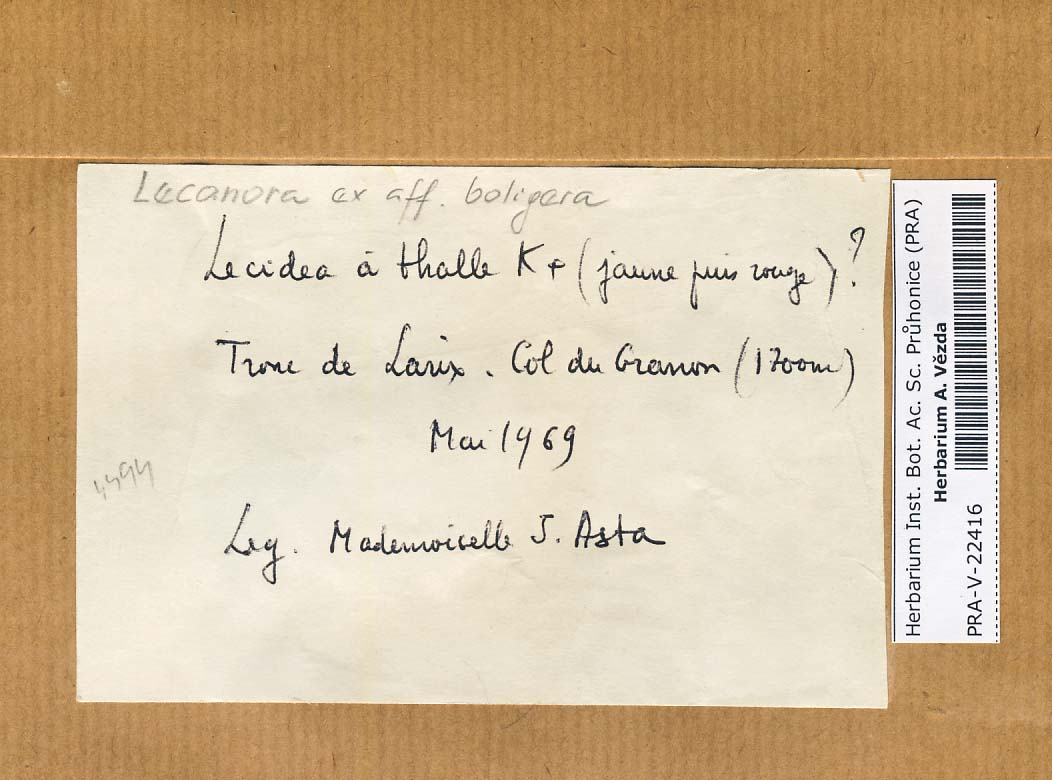 Lecanora ex aff. boligera
Lecidea à thalle K+ (jaune puis rouge)?
Tronc de Larix. Col du Granon (1700m)
Mai 1969
4494
Leg. Mademoiselle J. Asta
Herbarium Inst. Bot. Ac. Sc. Průhonice (PRA)
Herbarium A. Vězda
PRA-V-22416